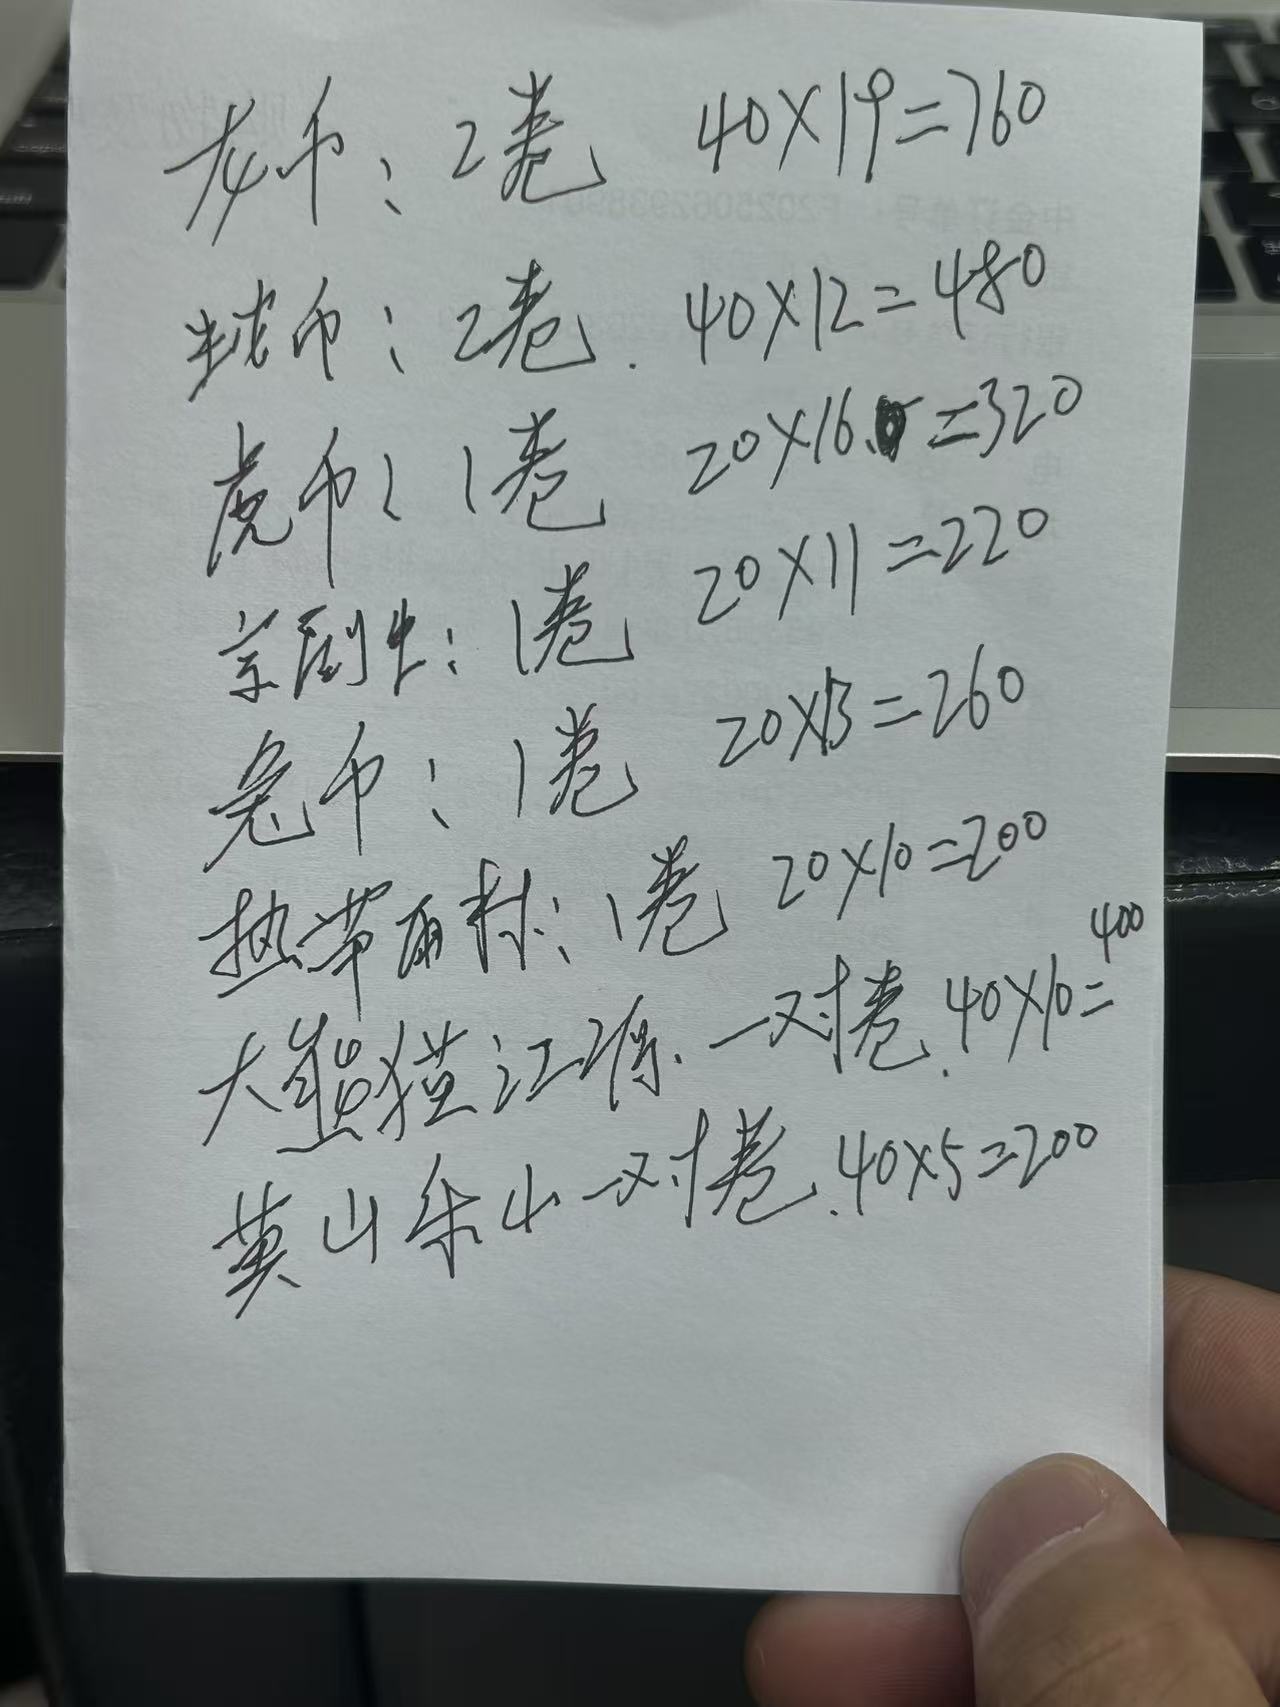 龙币：2卷 40×19=760
球币：2卷. 40×12=480
虎币：1卷 20×16. =320
京剧生：1卷 20×11=220
兔币：1卷 20×13=260
热带雨林：1卷 20×10=200
大熊猫江源.一对卷.40×10=400
黄山乐山一对卷.40×5=200